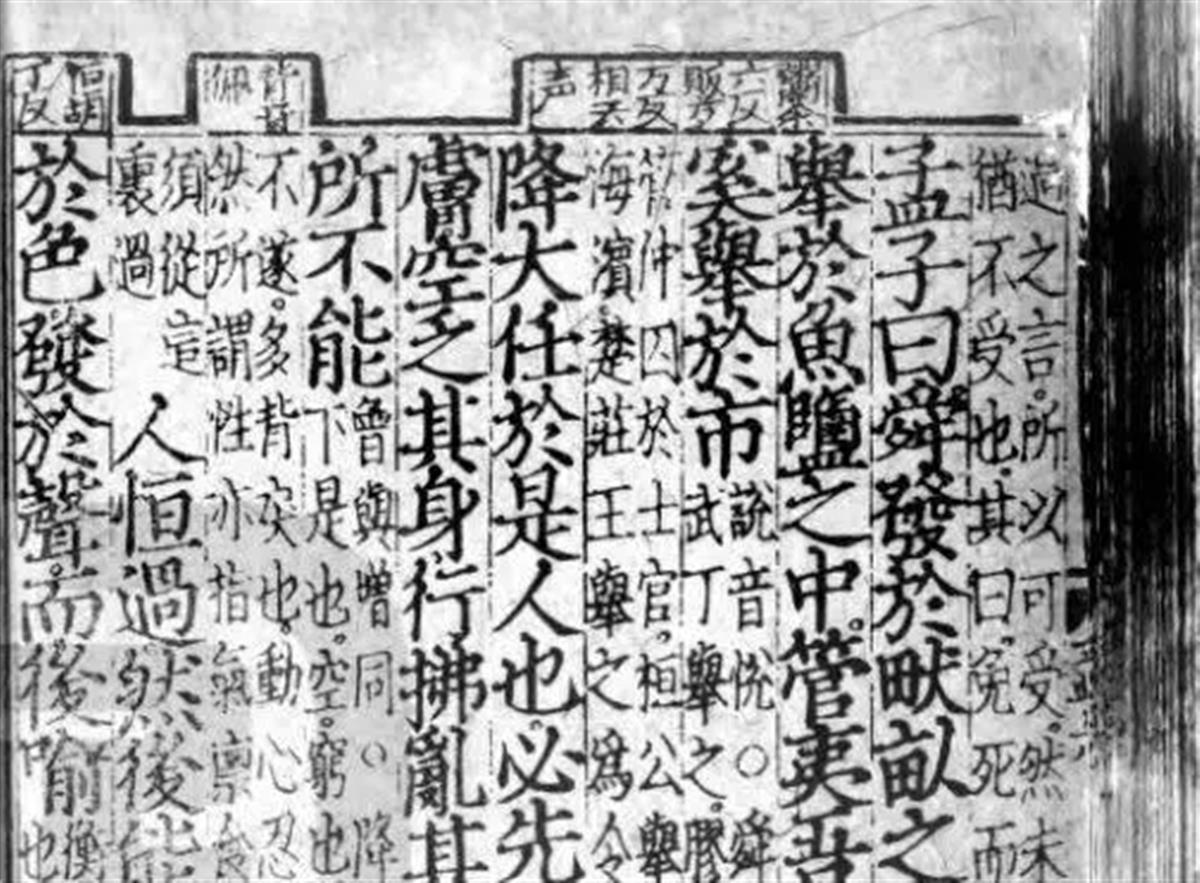 六反
相去
声
背音
佩
恒胡
反
過之言。所以可受。然未
猶不受也。其曰。免死而
孟子曰舜發於畎畝之
舉於魚鹽之中。管夷吾
奚舉於市
說音悅○舜
武丁舉之。膠
管仲囚於士官。桓公舉
海濱。楚莊王舉之爲令
降大任於是人也。必先
膚空乏其身。行拂亂其
所不能
曾與增同○降
下是也。空。窮也
不遂。多背戾也。動心忍
然所謂性亦指氣稟食
須從這
裏過
人恒過然後能
於色。發於聲。而後喻
衡
也